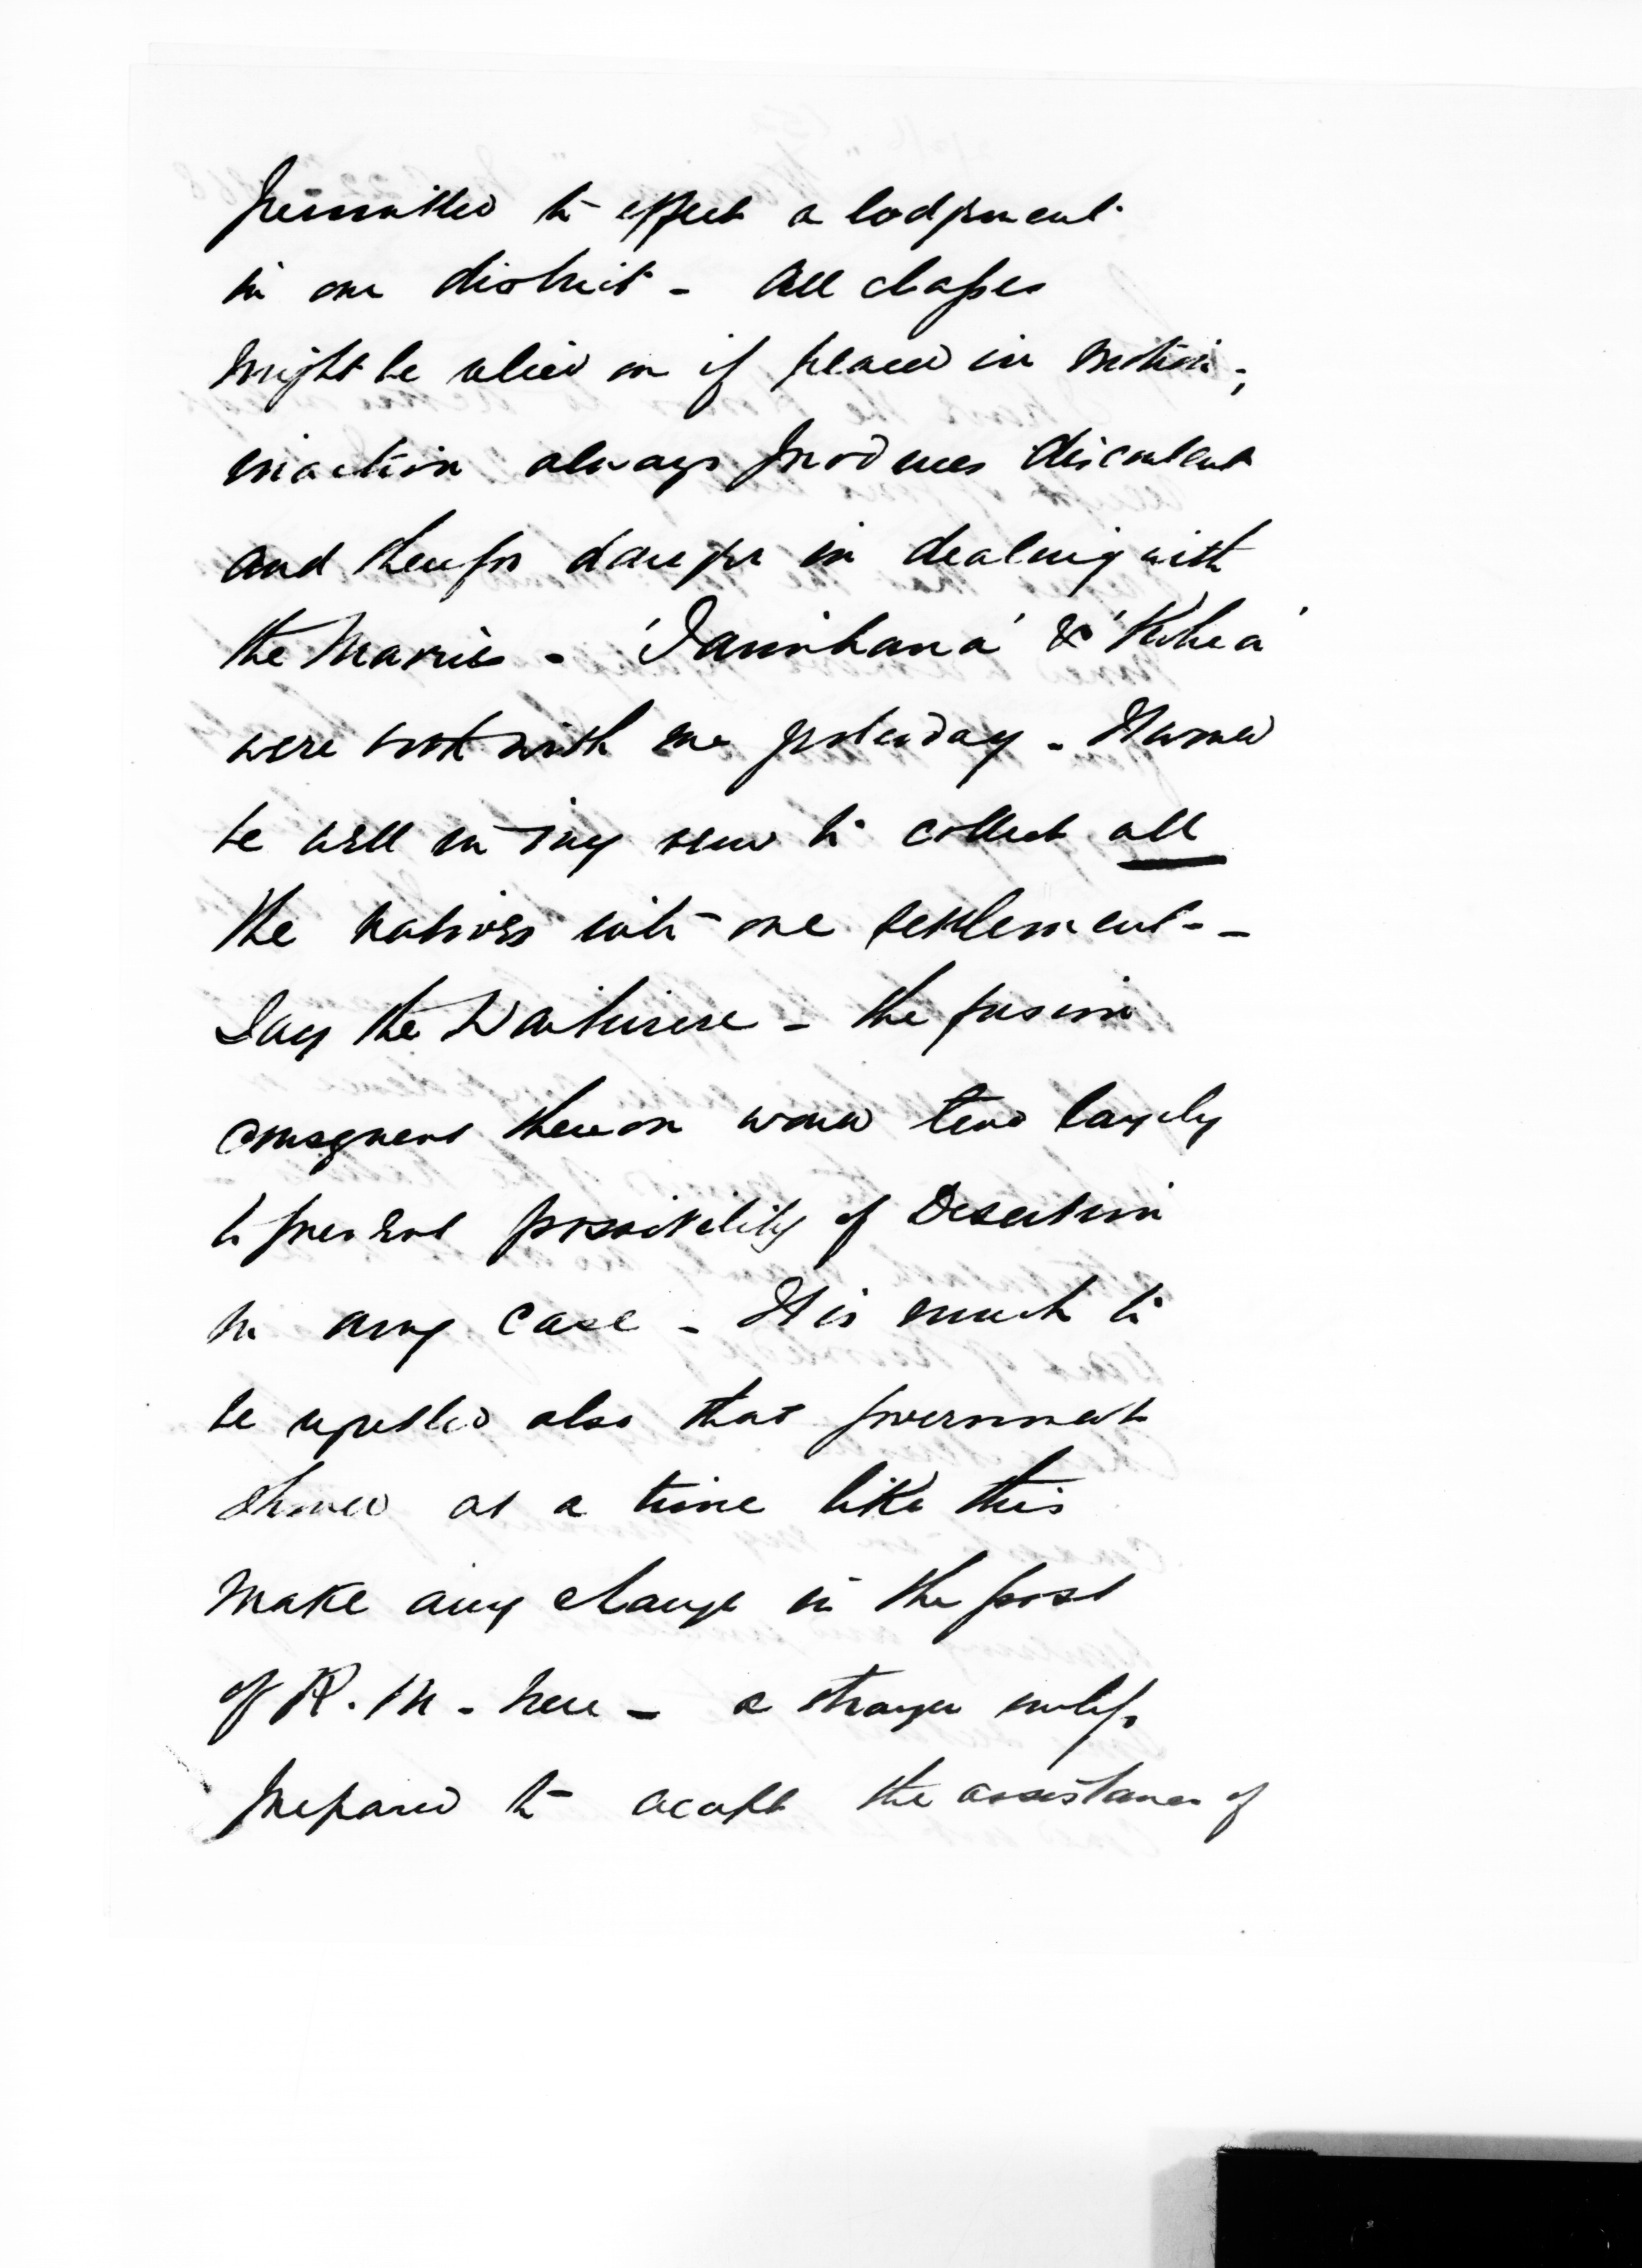 permitted to effect a lodgment
in our district - All classes
might be relied on if placed in motion;
inaction always produces discontent
and therefor danger in dealing with
the Maories - 'Tamihana' & 'Kehea'
were not with me yesterday - It would
be well in my view to collect all
the natives into one settlement - -
Say the Waihirere - the fusion
consequent thereon would tend largely
to prevent possibility of Desertion
in any case - It is much to
be regretted also that government
should at a time like this
make any change in the post
of R. M. here - a stranger unless
prepared to accept the assistance of